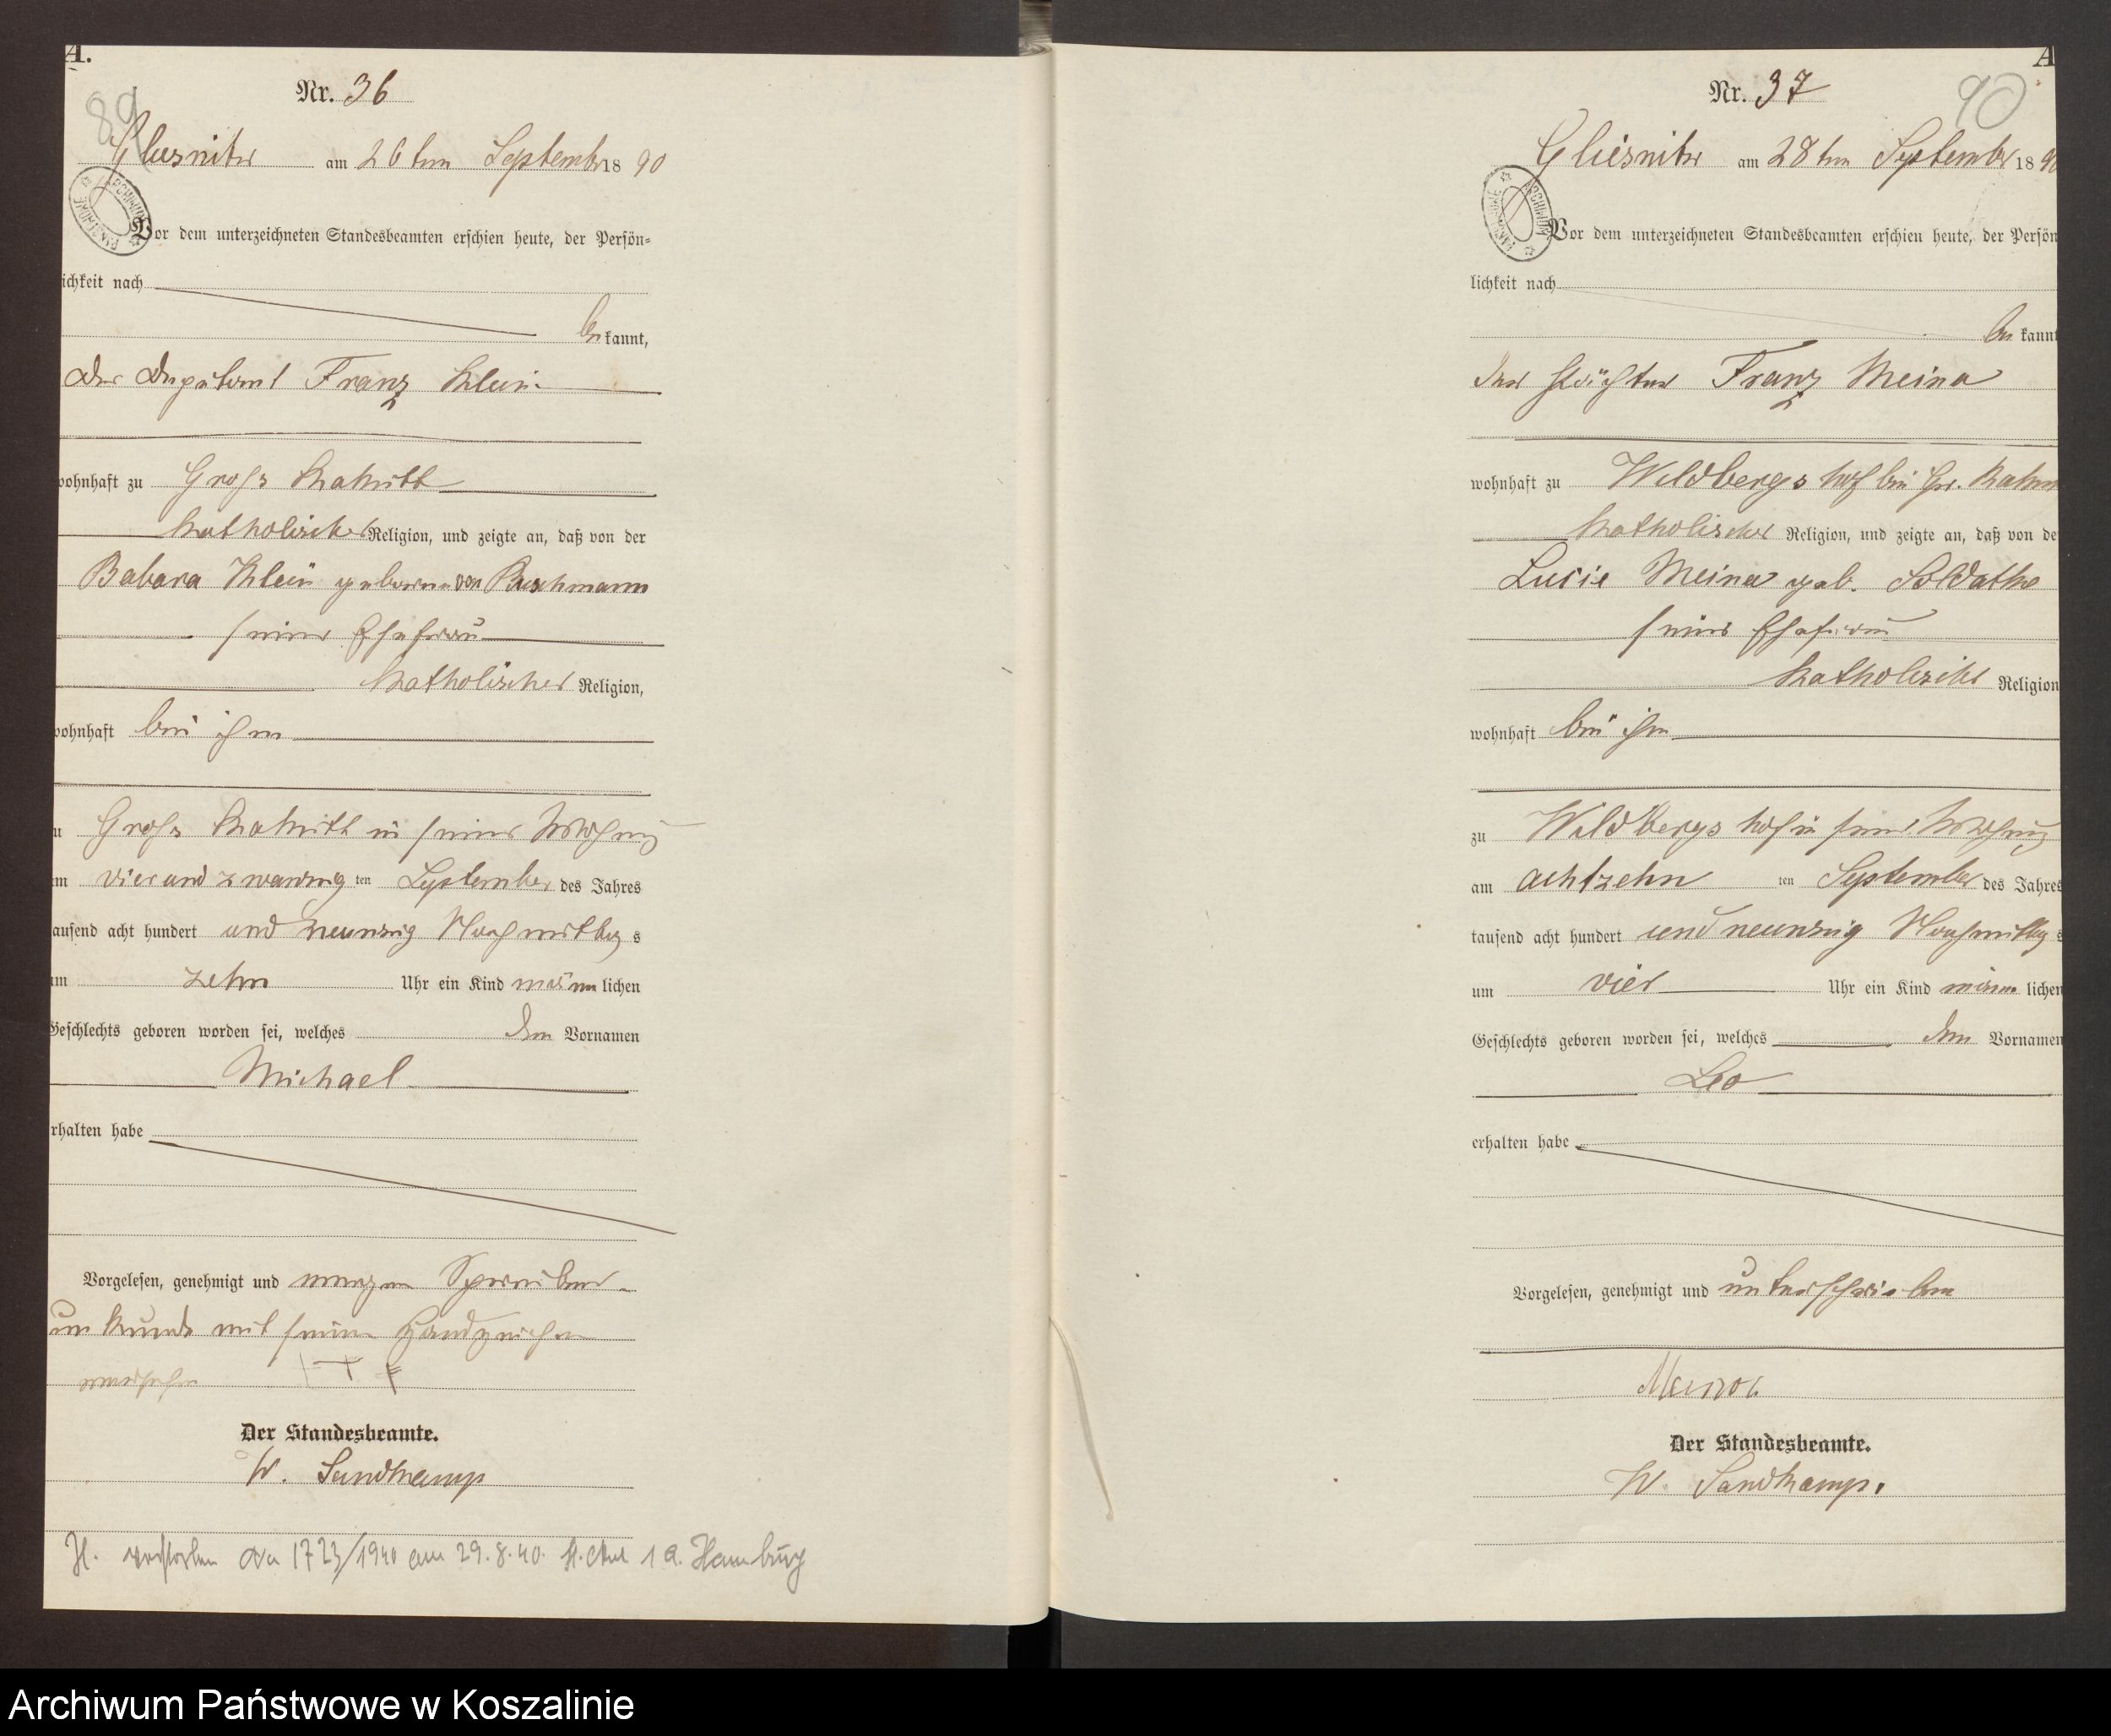 A.
89
Nr. 36
Gliesnitz am 26ten September 1890
Vor dem unterzeichneten Standesbeamten erschien heute, der Persön-
ichkeit nach
be kannt,
der Deputant Franz Klein
wohnhaft zu Gross Katkutt
katholischer Religion, und zeigte an, daß von der
Babara Klein geborene von Puschmann
seiner Ehefrau
katholischer Religion,
wohnhaft bei ihm
u Gross in seiner Wohnung
am vier und zwanzig ten September des Jahres
tausend acht hundert und neunzig Nachmittag s
um zehn Uhr ein Kind männ lichen
Geschlechts geboren worden sei, welches den Vornamen
Michael
rhalten habe
Vorgelesen, genehmigt und wegen Schreibens-
unkunde mit seinem Handzeichen
versehen +++
Der Standesbeamte.
W. Sandkamp
H. verstorben Nr 1723/1940 am 29.8.40. St. Amt 1a. Hamburg
A
90
Nr. 37
Gliesnitz am 28ten September 1890
Vor dem unterzeichneten Standesbeamten erschien heute, der Persön
lichkeit nach
be kannt
der Pächter Franz Meina
wohnhaft zu Wildbergshof bei Gr.
katholischer Religion, und zeigte an, daß von de
Lucie Meina geb. Soldatke
seiner Ehefrau
katholischer Religion
wohnhaft bei ihm
zu Wildbergshof in seiner Wohnung
am achtzehn ten September des Jahres
tausend acht hundert und neunzig Nachmittag s
um vier Uhr ein Kind männ lichen
Geschlechts geboren worden sei, welches den Vornamen
Leo
erhalten habe
Vorgelesen, genehmigt und unterschrieben
Meina
Der Standesbeamte.
W. Sandkamp.
Archiwum Państwowe w Koszalinie